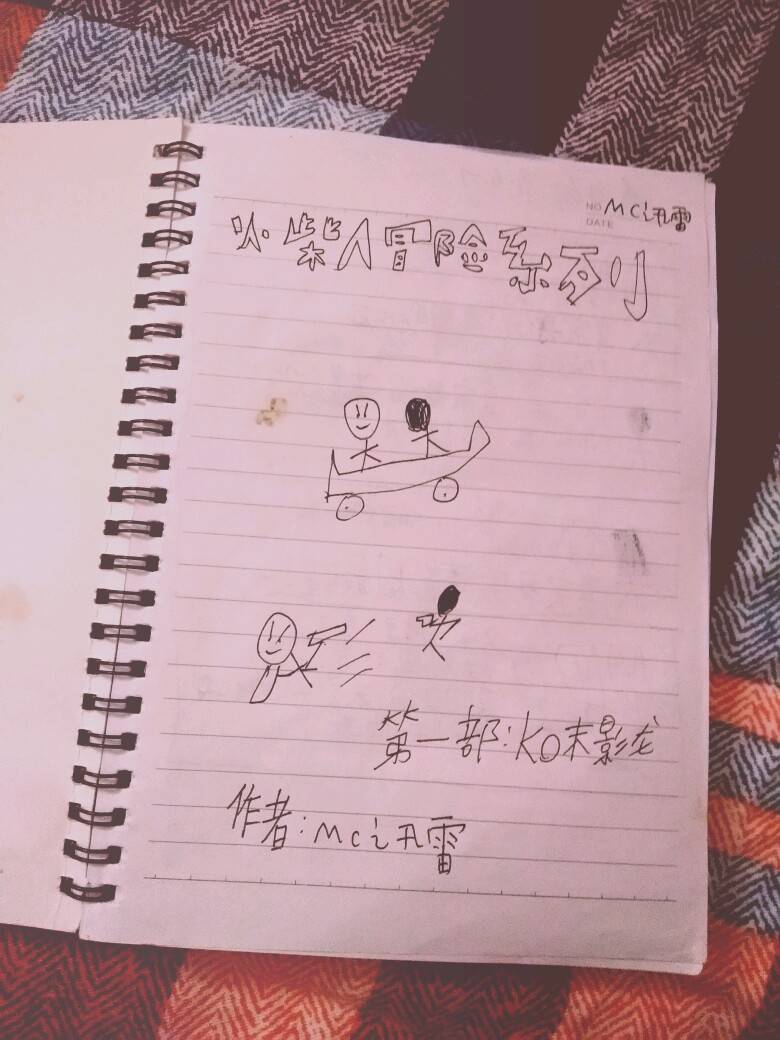 NO. MC迅雷
DATE
火柴人冒险系列
第一部:KO末影龙
作者:MC迅雷